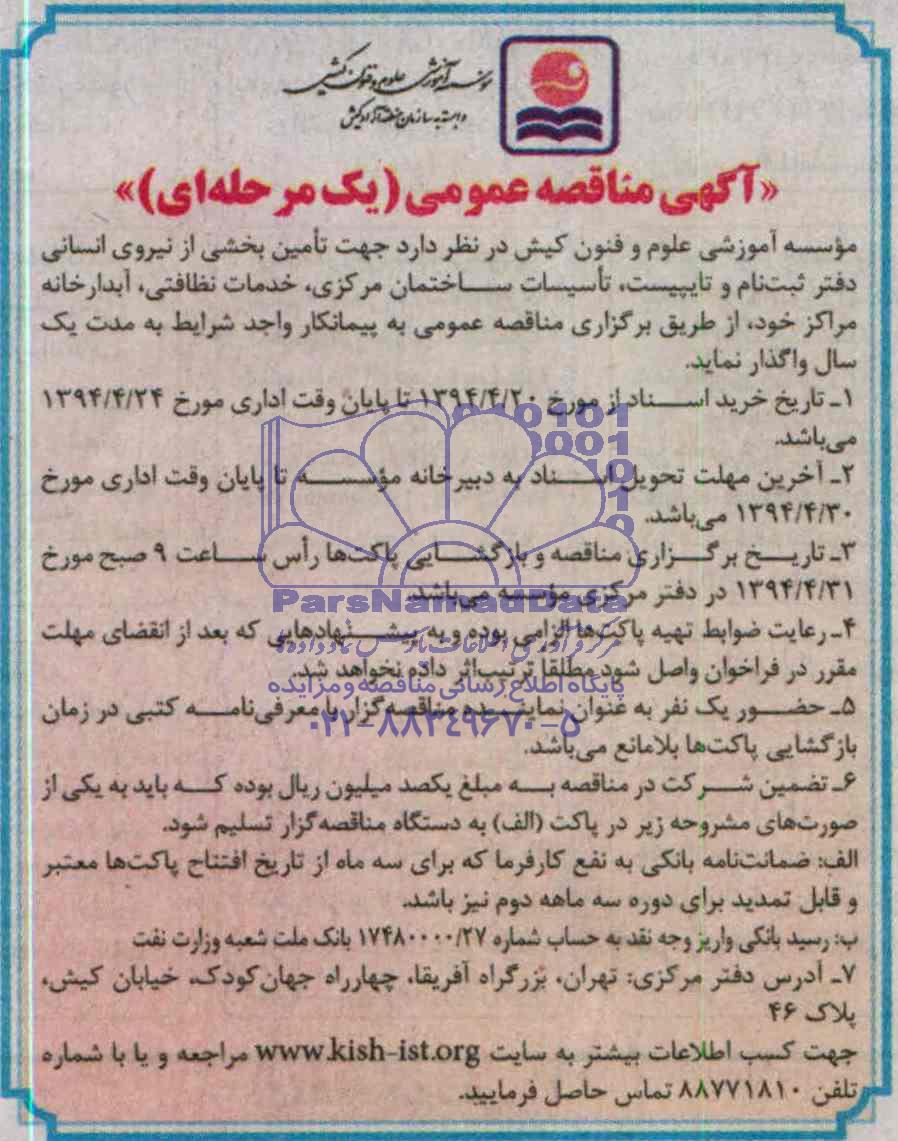 مؤسسه آموزشی علوم و فنون کیش
وابسته به سازمان منطقه آزاد کیش
«آگهی مناقصه عمومی (یک مرحله‌ای)»
مؤسسه آموزشی علوم و فنون کیش در نظر دارد جهت تأمین بخشی از نیروی انسانی
دفتر ثبت‌نام و تایپیست، تأسیسات ساختمان مرکزی، خدمات نظافتی، آبدارخانه
مراکز خود، از طریق برگزاری مناقصه عمومی به پیمانکار واجد شرایط به مدت یک
سال واگذار نماید.
۱ـ تاریخ خرید اسناد از مورخ ۱۳۹۴/۴/۲۰ تا پایان وقت اداری مورخ ۱۳۹۴/۴/۲۴
می‌باشد.
۲ـ آخرین مهلت تحویل اسناد به دبیرخانه مؤسسه تا پایان وقت اداری مورخ
۱۳۹۴/۴/۳۰ می‌باشد.
۳ـ تاریخ برگزاری مناقصه و بازگشایی پاکت‌ها رأس ساعت ۹ صبح مورخ
۱۳۹۴/۴/۳۱ در دفتر مرکزی مؤسسه می‌باشد.
ParsNamadData
۴ـ رعایت ضوابط تهیه پاکت‌ها الزامی بوده و به پیشنهادهایی که بعد از انقضای مهلت
مقرر در فراخوان واصل شود مطلقا ترتیب‌اثر داده نخواهد شد.
پایگاه اطلاع رسانی مناقصه و مزایده
۵ـ حضور یک نفر به عنوان نماینده مناقصه‌گزار با معرفی‌نامه کتبی در زمان
۰۲۱-۸۸۳۴۹۶۷۰-۵
بازگشایی پاکت‌ها بلامانع می‌باشد.
۶ـ تضمین شرکت در مناقصه به مبلغ یکصد میلیون ریال بوده که باید به یکی از
صورت‌های مشروحه زیر در پاکت (الف) به دستگاه مناقصه‌گزار تسلیم شود.
الف: ضمانت‌نامه بانکی به نفع کارفرما که برای سه ماه از تاریخ افتتاح پاکت‌ها معتبر
و قابل تمدید برای دوره سه ماهه دوم نیز باشد.
ب: رسید بانکی واریز وجه نقد به حساب شماره ۱۷۴۸۰۰۰۰/۲۷ بانک ملت شعبه وزارت نفت
۷ـ آدرس دفتر مرکزی: تهران، بزرگراه آفریقا، چهارراه جهان‌کودک، خیابان کیش،
پلاک ۴۶
جهت کسب اطلاعات بیشتر به سایت www.kish-ist.org مراجعه و یا با شماره
تلفن ۸۸۷۷۱۸۱۰ تماس حاصل فرمایید.